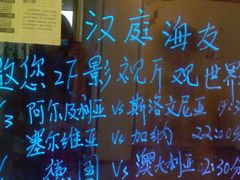 汉庭海友
邀您2F影视厅观世界
/3 阿尔及利亚 VS 斯洛文尼亚 19:3
塞尔维亚 VS 加纳 22:00
德国 VS 澳大利亚 2:30分